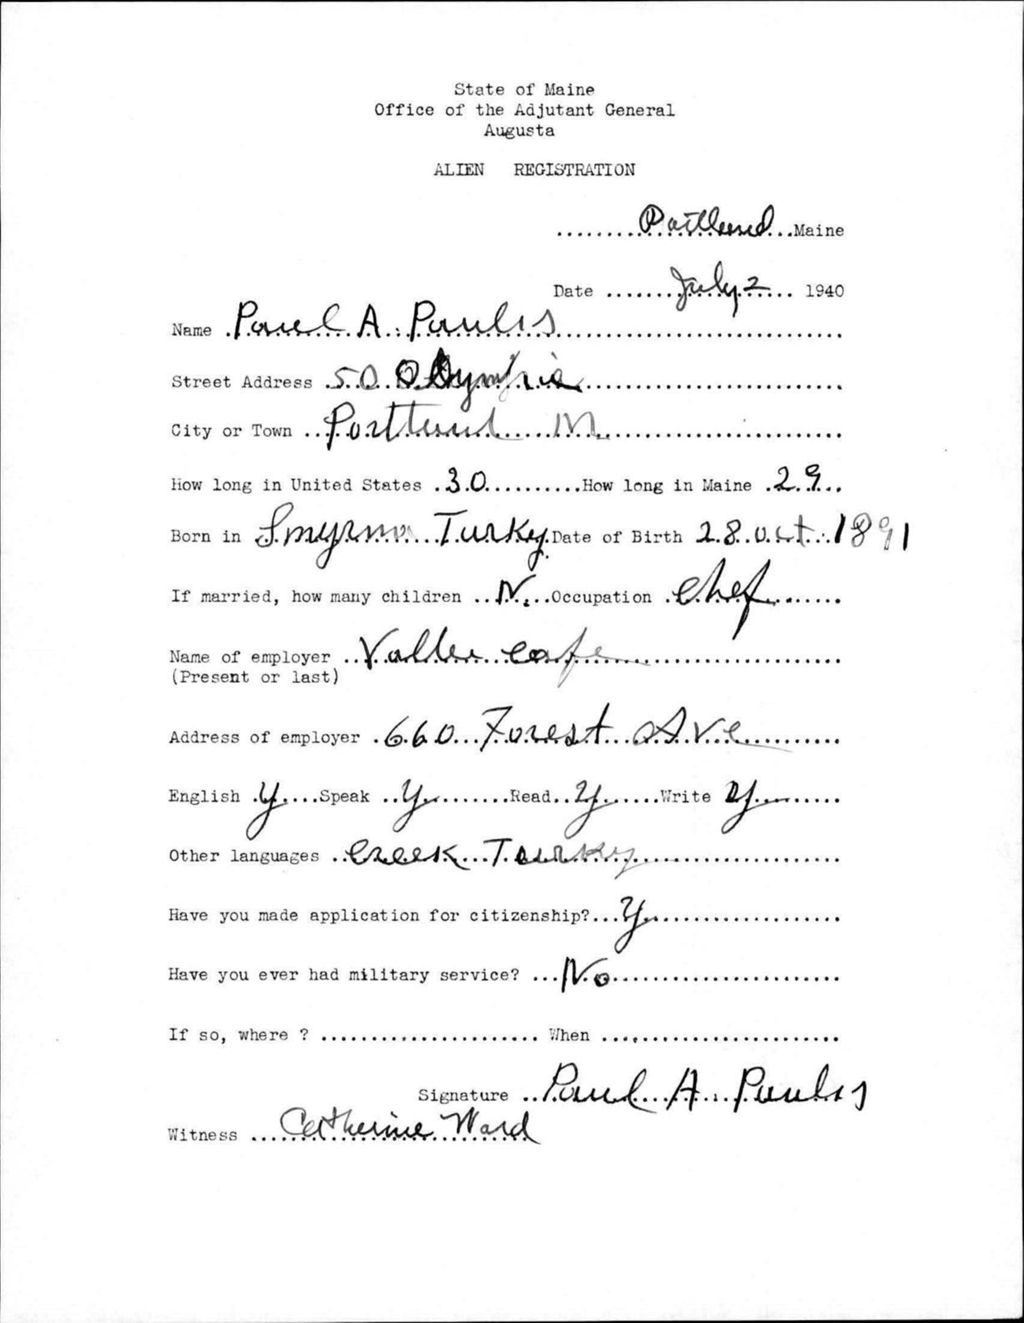 State of Maine
Office of the Adjutant General
Augusta
ALIEN REGISTRATION
.........Portland...Maine
Date .......July 2...... 1940
Name .Paul A. Paulis.............................
Street Address .50 Olympia..........................
City or Town ..Portland.....M...........................
How long in United States .30...........How long in Maine .29...
Born in Smyrna Turky Date of Birth 28 Oct. 1891
If married, how many children ..N...Occupation .Chef.......
Name of employer ..Valle...cafe.......................
(Present or last)
Address of employer .660...Forest...Ave..........
English .y....Speak ..y.........Read..y......Write y..........
Other languages ..Creek...Turky.......................
Have you made application for citizenship?...y....................
Have you ever had military service? ...No.......................
If so, where ? ...................... When ........................
Signature ..Paul A. Paulis
Witness ....Catherine Ward